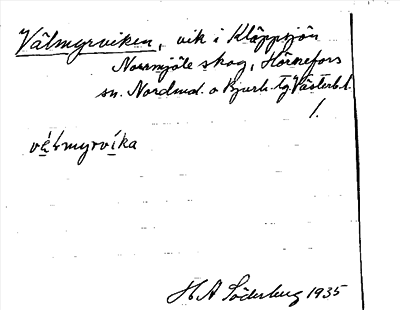 Välmyrviken, vik i Kläppsjön
Norrmjöle skog, Hörnefors
sn. Nordmal. o Bjurh. tg. Västerb. l.
1.
vél-myrvíka
H A Söderberg 1935